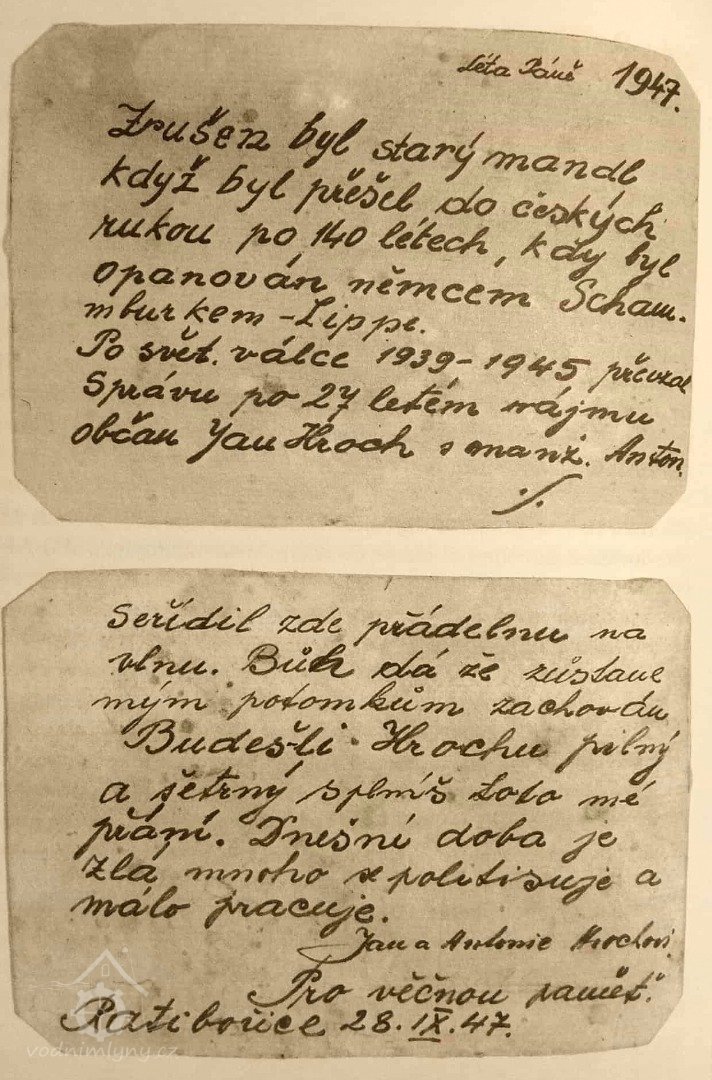 Léta Páně 1947.
Zrušen byl starý mandl
když byl přešel do českých
rukou po 140 létech, kdy byl
opanován němcem Schau-
mburkem-Lippe.
Po svět. válce 1939-1945 převzal
Správu po 27 letém nájmu
občan Jan Hroch s manž. Anton.
./.
Seřídil zde přádelnu na
vlnu. Bůh dá že zůstane
mým potomkům zachován
Budeš-li Hrochu pilný
a šetrný splníš toto mé
přání. Dnešní doba je
zlá mnoho se politisuje a
málo pracuje.
Jan a Antonie Hrochovi.
Pro věčnou paměť.
Ratibořice 28.IX.47.
vodnimlyny.cz